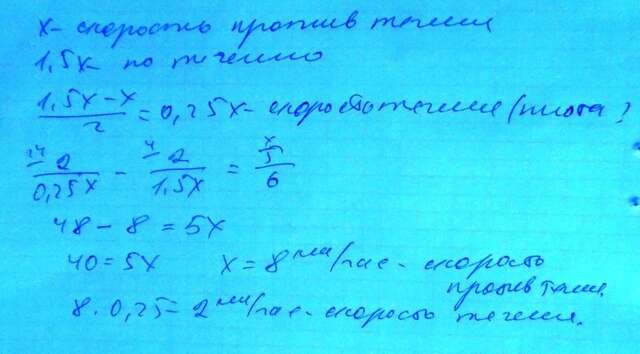 х- скорость против течения
1,5х- по течению
(1,5х-х)/2 = 0,25х- скорость течения (плота)
24 2/0,25х - 4 2/1,5х = х 5/6
48-8=5х
40=5х х=8 км/час - скорость
против теч.
8·0,25=2 км/час- скорость течения.